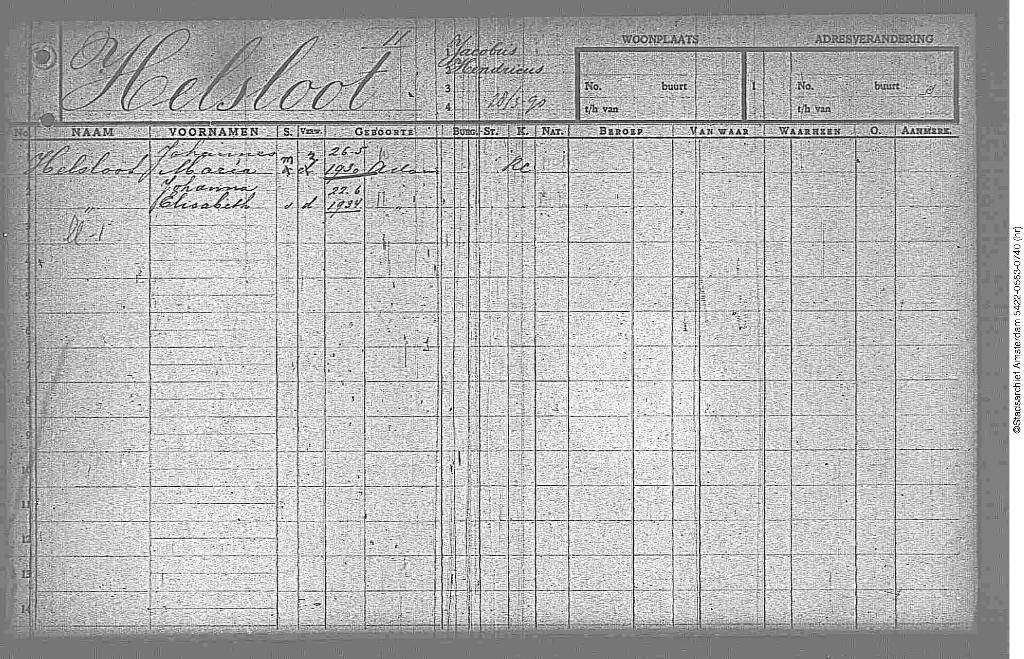 Helsloot
II
Jacobus
Hendricus
3
4
28/5-90
WOONPLAATS
No. buurt
t/h van
ADRESVERANDERING
1 No. buurt
t/h van
No. NAAM VOORNAMEN S. VERW. GEBOORTE BURG. ST. K. NAT. BEROEP VAN WAAR WAARHEEN O. AANMERK.
Johannes 26-5
Helsloot Maria m z 1930 Adam RC
Johanna 22.6
" Elisabeth v d 1934 " "
3
4
5
6
7
8
9
10
11
12
13
14
©Stadsarchief Amsterdam 5422-0563-0740 (hr)